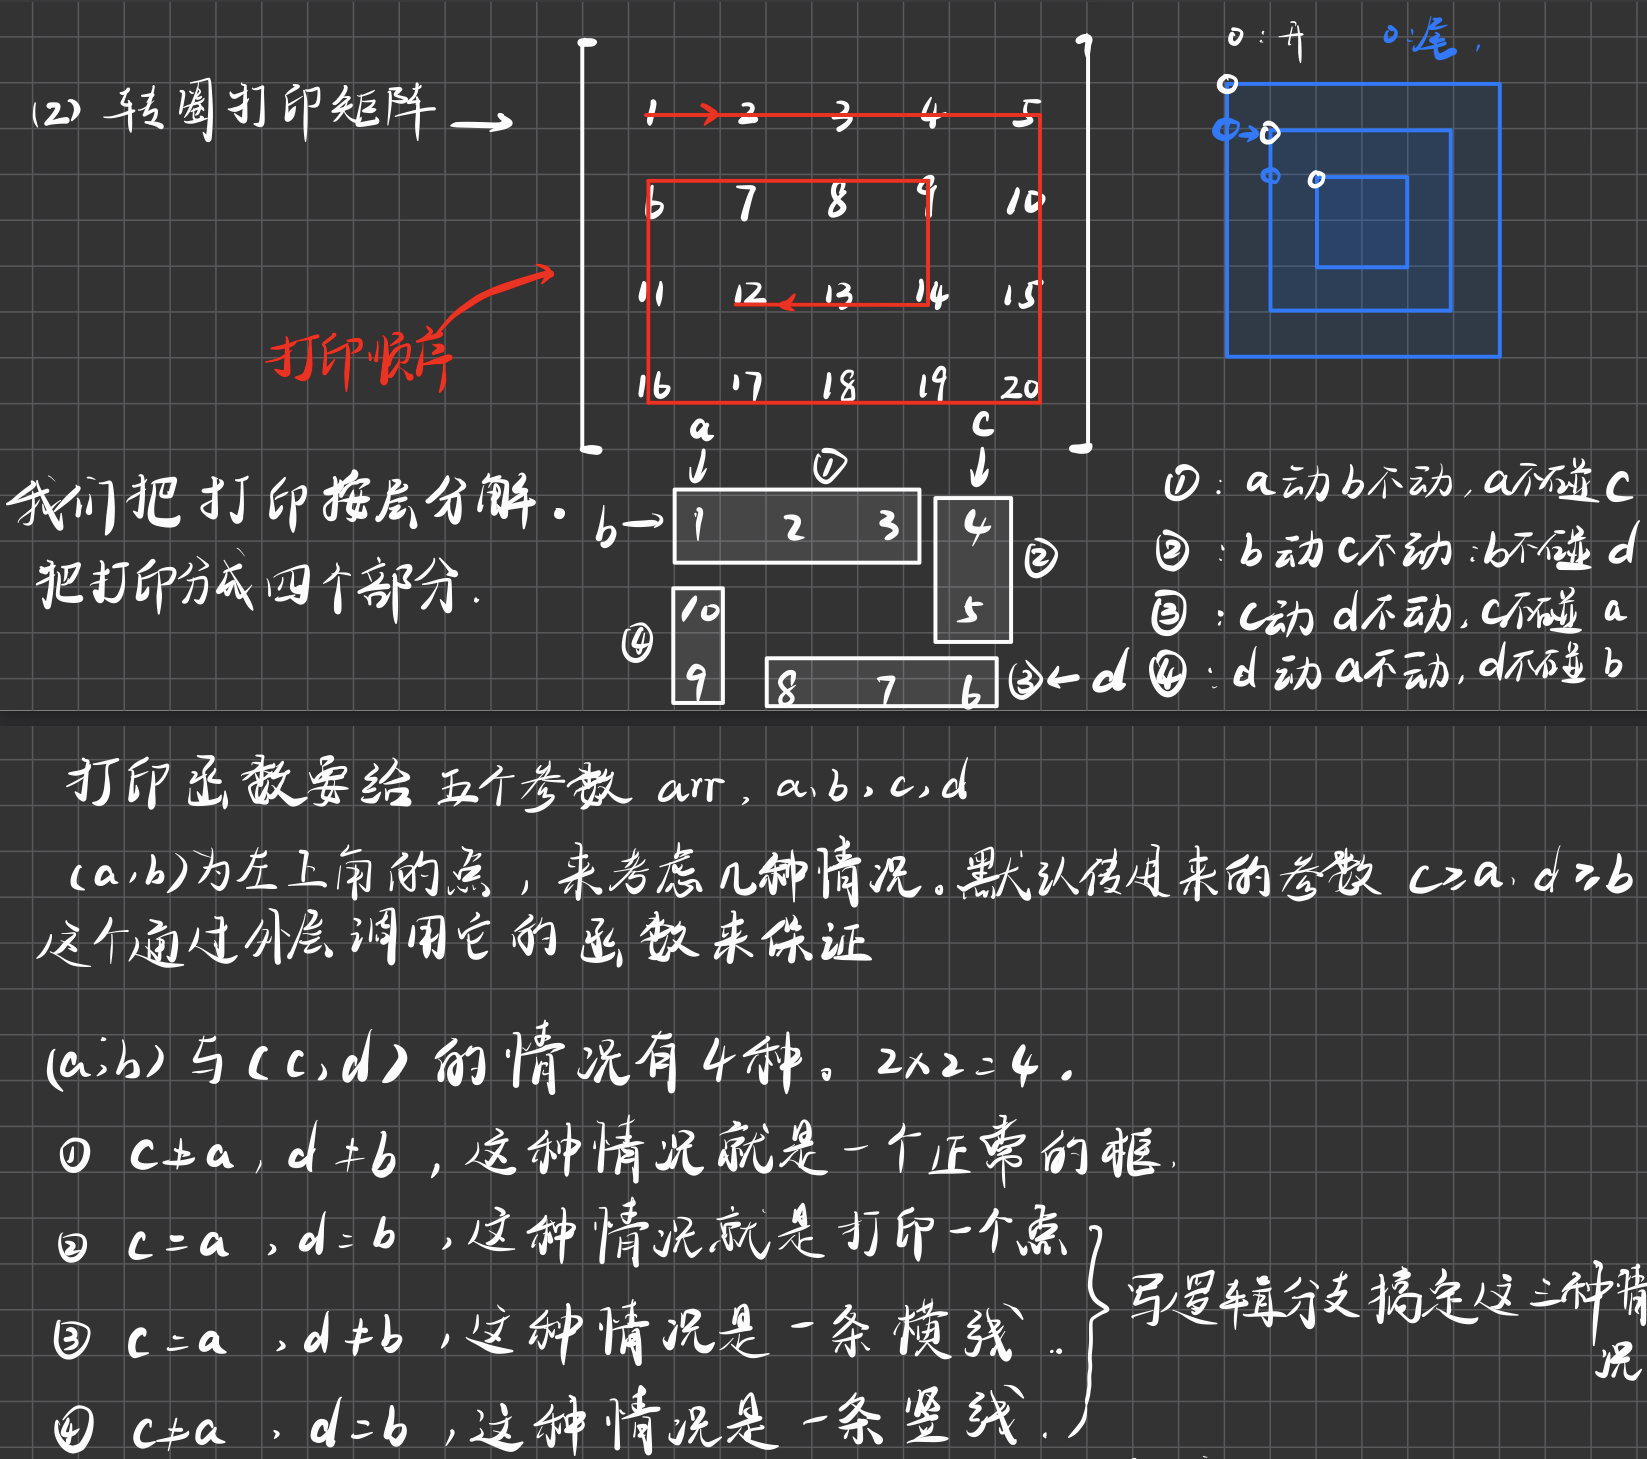 (2) 转圈打印矩阵 →
0:开 0:尾.
1 2 3 4 5
6 7 8 9 10
11 12 13 14 15
16 17 18 19 20
打印顺序
我们把打印按层分解.
把打印分成四个部分.
a c
①
b→ 1 2 3 4
②
10 5
④
9 8 7 6 ③←d
①:a动b不动,a不碰c
②:b动c不动:b不碰d
③:c动d不动,c不碰a
④:d动a不动,d不碰b
打印函数要给五个参数 arr, a,b,c,d
(a,b)为左上角的点,来考虑几种情况。默认传进来的参数 c≥a, d≥b
这个通过外层调用它的函数来保证
(a,b)与(c,d)的情况有4种。2×2=4.
① c≠a, d≠b,这种情况就是一个正常的框.
② c=a,d=b,这种情况就是打印一个点
③ c=a,d≠b,这种情况是一条横线..
④ c≠a,d=b,这种情况是一条竖线.
写逻辑分支搞定这三种情
况